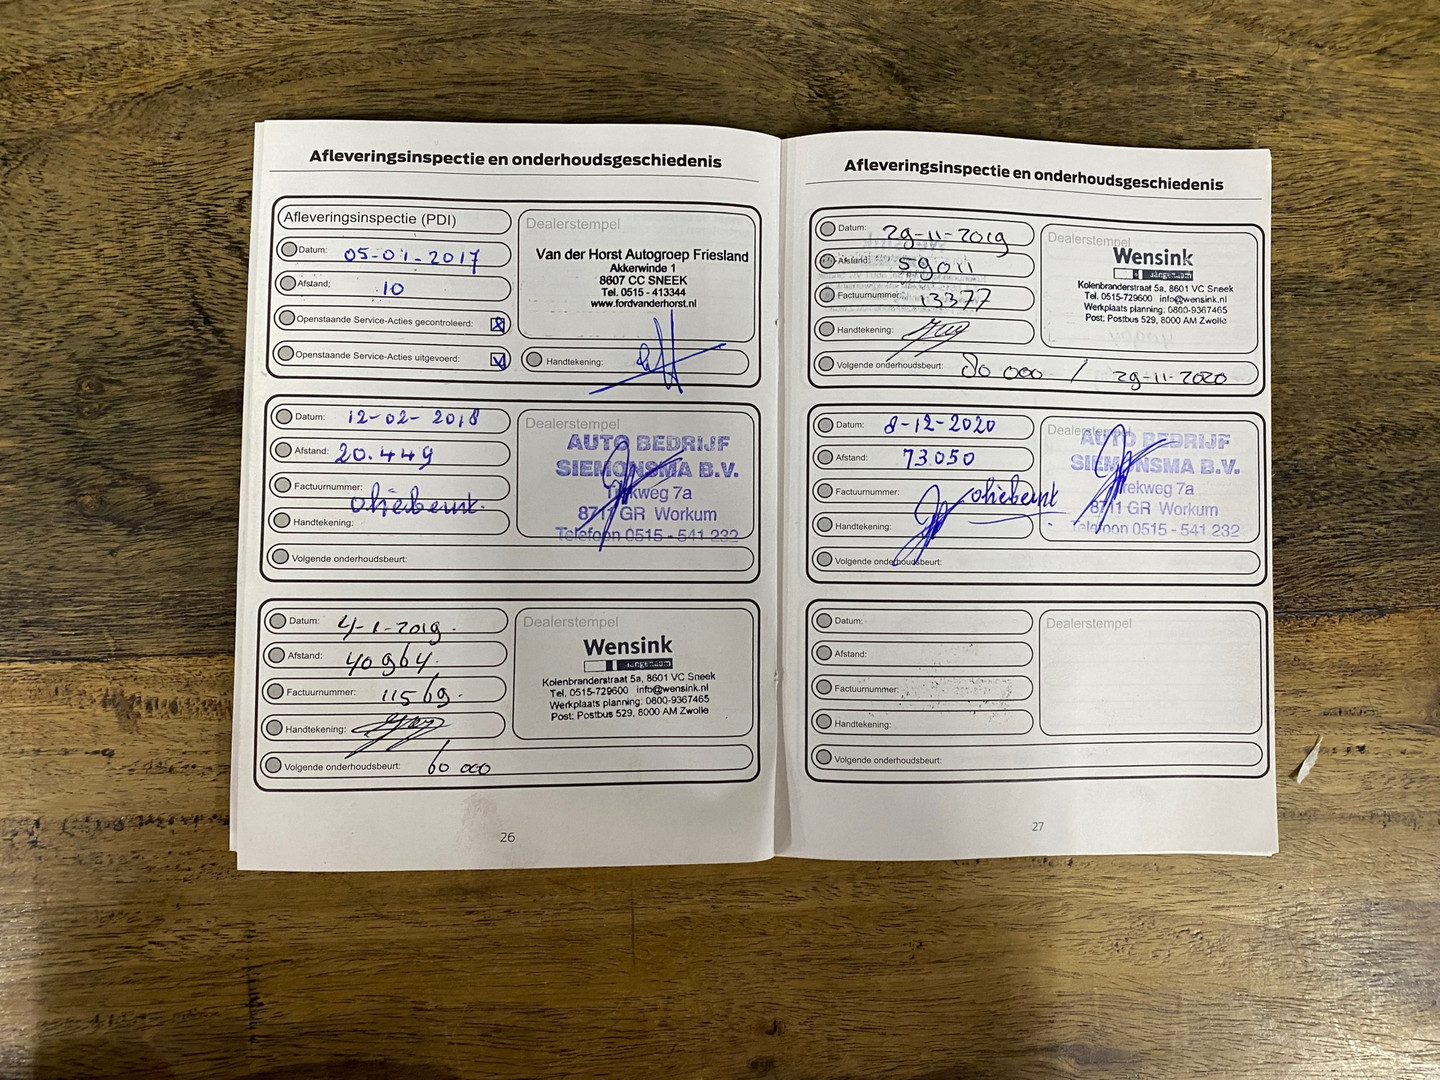 Afleveringsinspectie en onderhoudsgeschiedenis
Afleveringsinspectie (PDI)
Datum: 05-01-2017
Afstand: 10
Openstaande Service-Acties gecontroleerd:
Openstaande Service-Acties uitgevoerd:
Dealerstempel
Van der Horst Autogroep Friesland
Akkerwinde 1
8607 CC SNEEK
Tel. 0515 - 413344
www.fordvanderhorst.nl
Handtekening:
Datum: 12-02-2018
Afstand: 20.449
Factuurnummer:
oliebeurt.
Handtekening:
Volgende onderhoudsbeurt:
Dealerstempel
AUTO BEDRIJF
SIEMONSMA B.V.
Trekweg 7a
8711 GR Workum
Telefoon 0515 - 541 232
Datum: 4-1-2019.
Afstand: 40964.
Factuurnummer: 11569.
Handtekening:
Volgende onderhoudsbeurt: 60 000
Dealerstempel
Wensink
Kolenbranderstraat 5a, 8601 VC Sneek
Tel. 0515-729600 info@wensink.nl
Werkplaats planning: 0800-9367465
Post: Postbus 529, 8000 AM Zwolle
26
Afleveringsinspectie en onderhoudsgeschiedenis
Datum: 29-11-2019
Afstand: 59011
Factuurnummer: 13377
Handtekening:
Volgende onderhoudsbeurt: 80 000 / 29-11-2020
Dealerstempel
Wensink
Kolenbranderstraat 5a, 8601 VC Sneek
Tel. 0515-729600 info@wensink.nl
Werkplaats planning: 0800-9367465
Post: Postbus 529, 8000 AM Zwolle
Datum: 8-12-2020
Afstand: 73050
Factuurnummer: oliebeurt
Handtekening:
Volgende onderhoudsbeurt:
Dealerstempel
AUTO BEDRIJF
SIEMONSMA B.V.
Trekweg 7a
8711 GR Workum
Telefoon 0515 - 541 232
Datum:
Afstand:
Factuurnummer:
Handtekening:
Volgende onderhoudsbeurt:
Dealerstempel
27